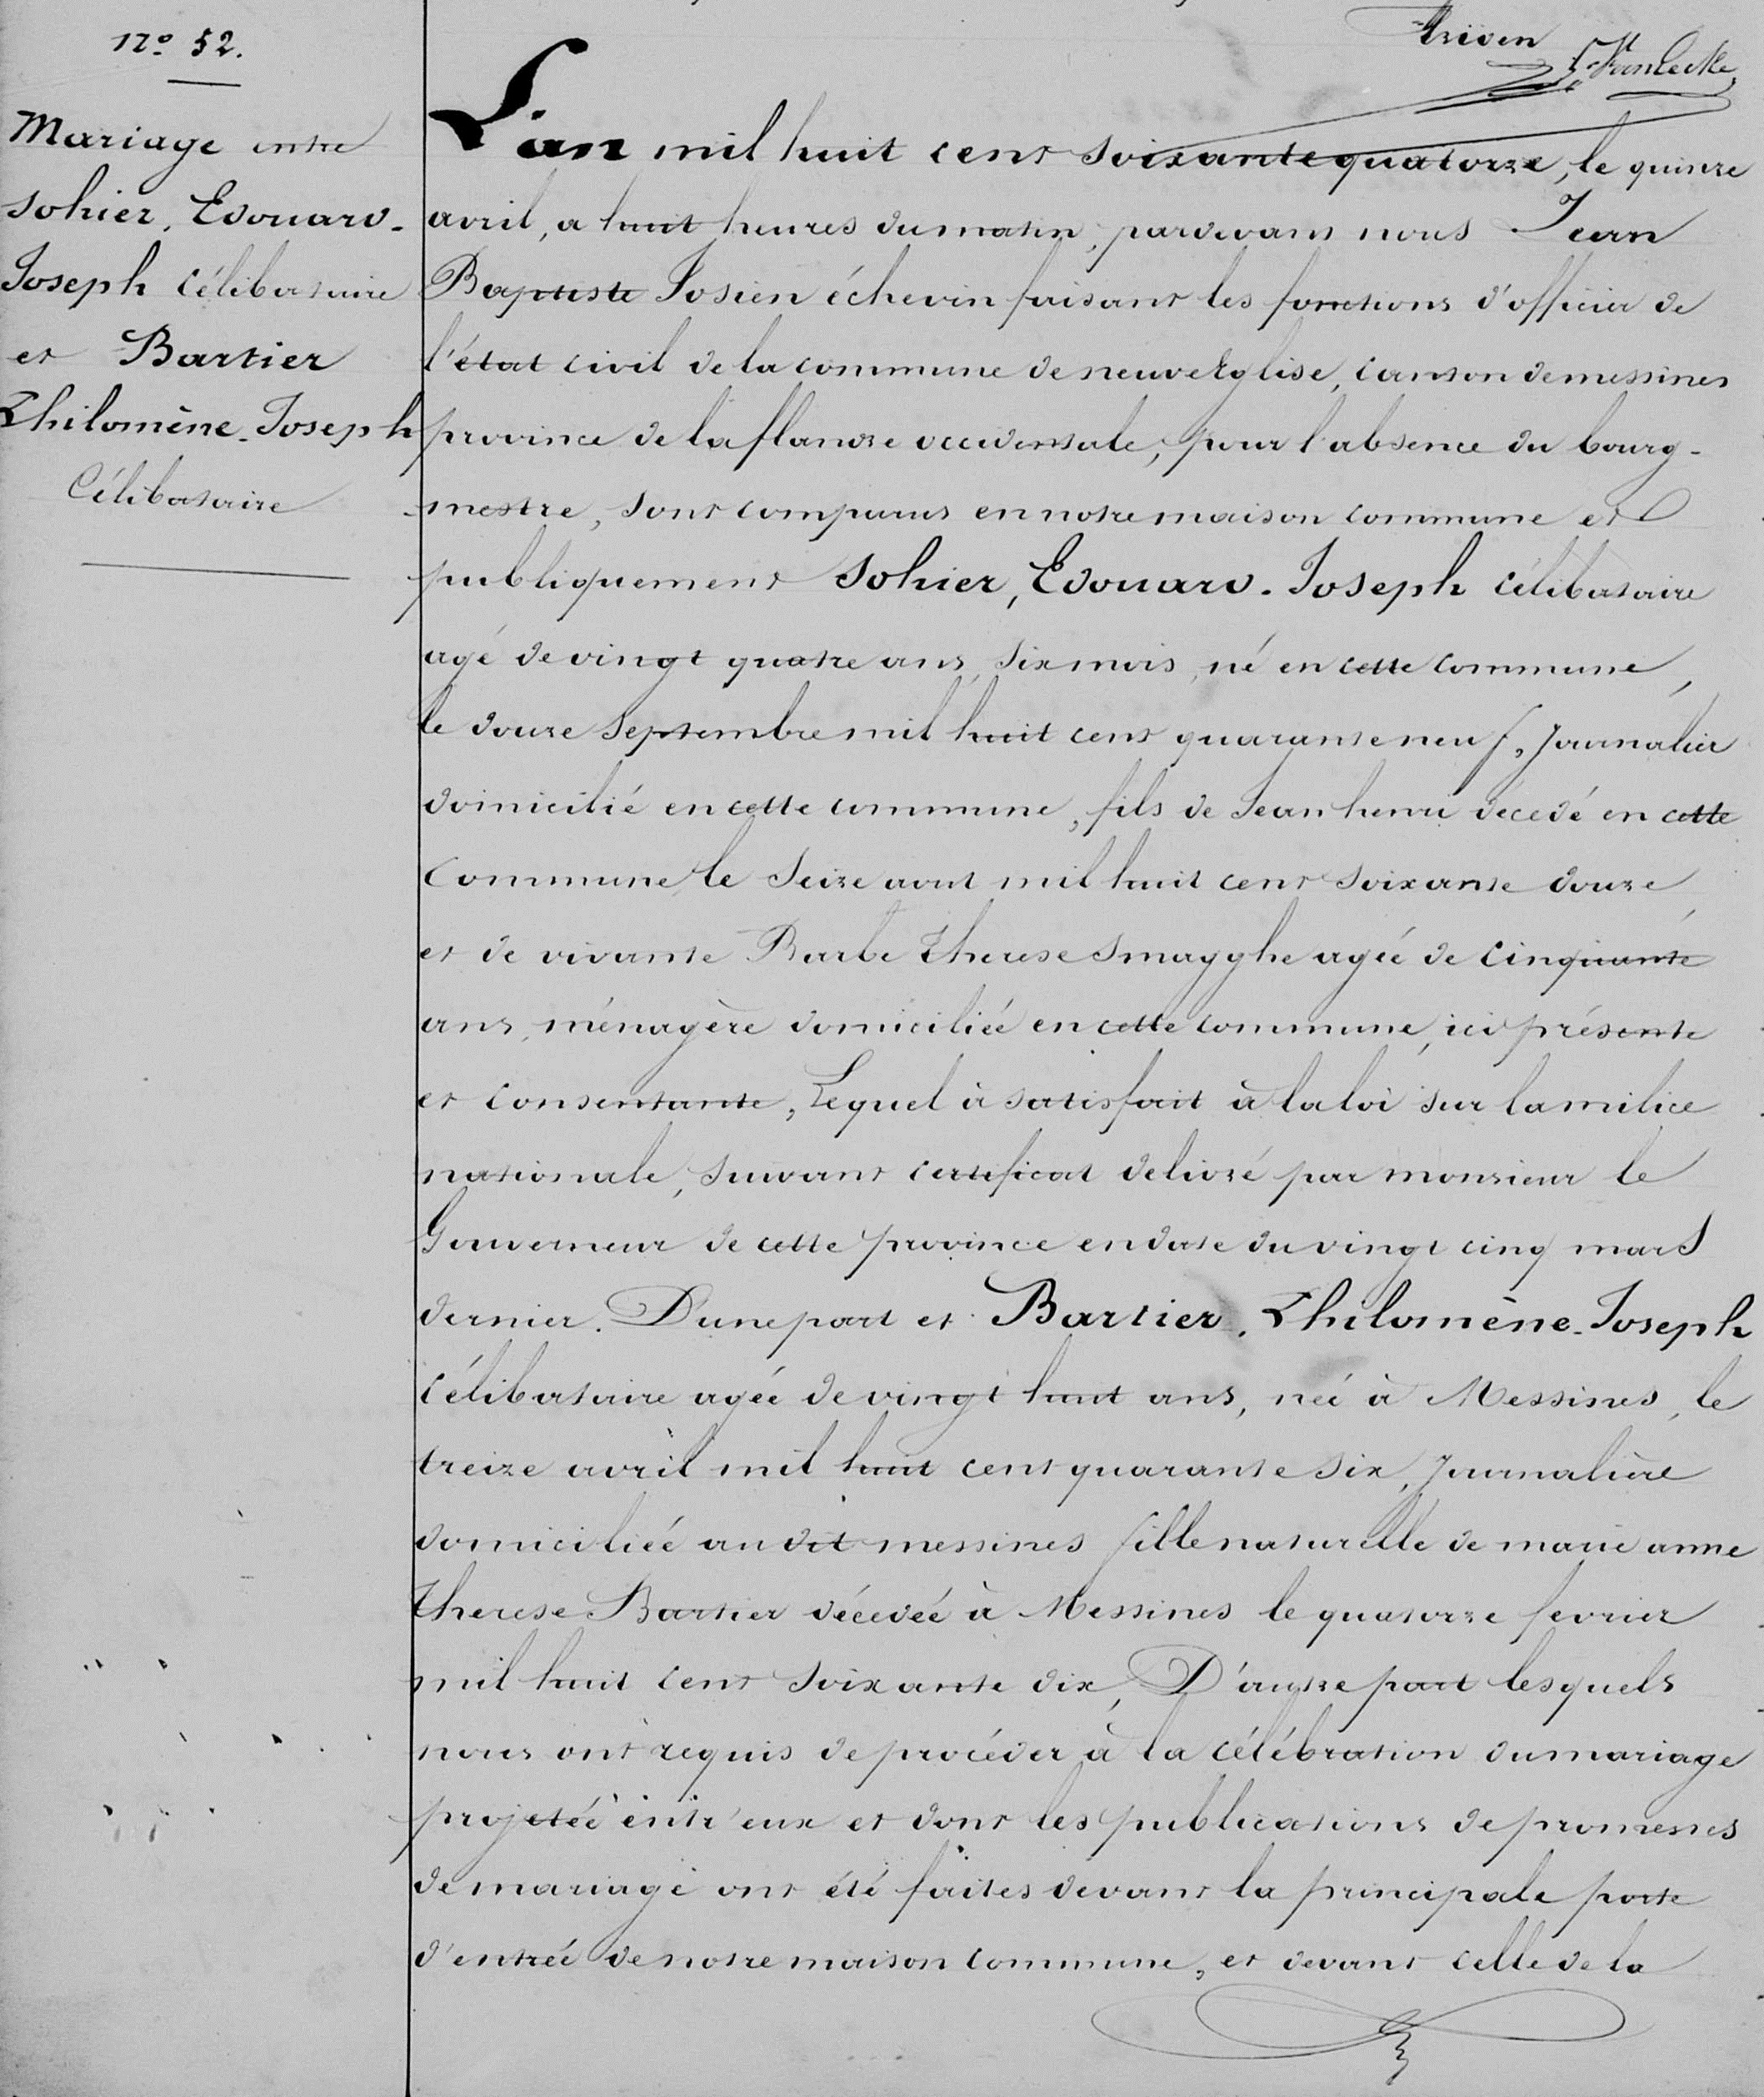 N.º 52.
Mariage entre
Sohier, Edouard-
Joseph Célibataire
et Bartier
Philomène-Joseph
Célibataire
L'an mil huit cent soixante quatorze, le quinze
avril, a huit heures du matin, pardevant nous Jean
Baptiste Josien échevin faisant les fonctions d'officier de
l'état civil de la commune de neuveEglise, canton de messines
province de la flandre occidentale, pour l'absence du bourg-
mestre, sont comparus en notre maison commune et
publiquement Sohier, Edouard-Joseph Célibataire
agé de vingt quatre ans, six mois, né en cette commune,
le douze Septembre mil huit cent quarante neuf, Journalier
domicilié en cette commune, fils de Jean henri décedé en cette
Commune, le Seize aout mil huit cent soixante douze,
et de vivante Barbe Therese Smagghe agée de cinquante
ans, ménagère domiciliée en cette commune, ici présente
et Consentante, Lequel à satisfait à la loi sur la milice
nationale, suivant certificat delivré par monsieur le
Gouverneur de cette province en date du vingt cinq mars
dernier. D'une part et Bartier, Philomène-Joseph
Célibataire agée de vingt huit ans, née à Messines, le
treize avril mil huit cent quarante six, Journalière
domiciliée au dit messines fille naturelle de marie anne
Therese Bartier décedée à Messines le quatorze fevrier
mil huit cent soixante dix, D'autre part lesquels
nous ont requis de procéder à la célébration du mariage
projetée entr'eux et dont les publications de promesses
de mariage ont été faites devant la principale porte
d'entrée de notre maison commune, et devant celle de la